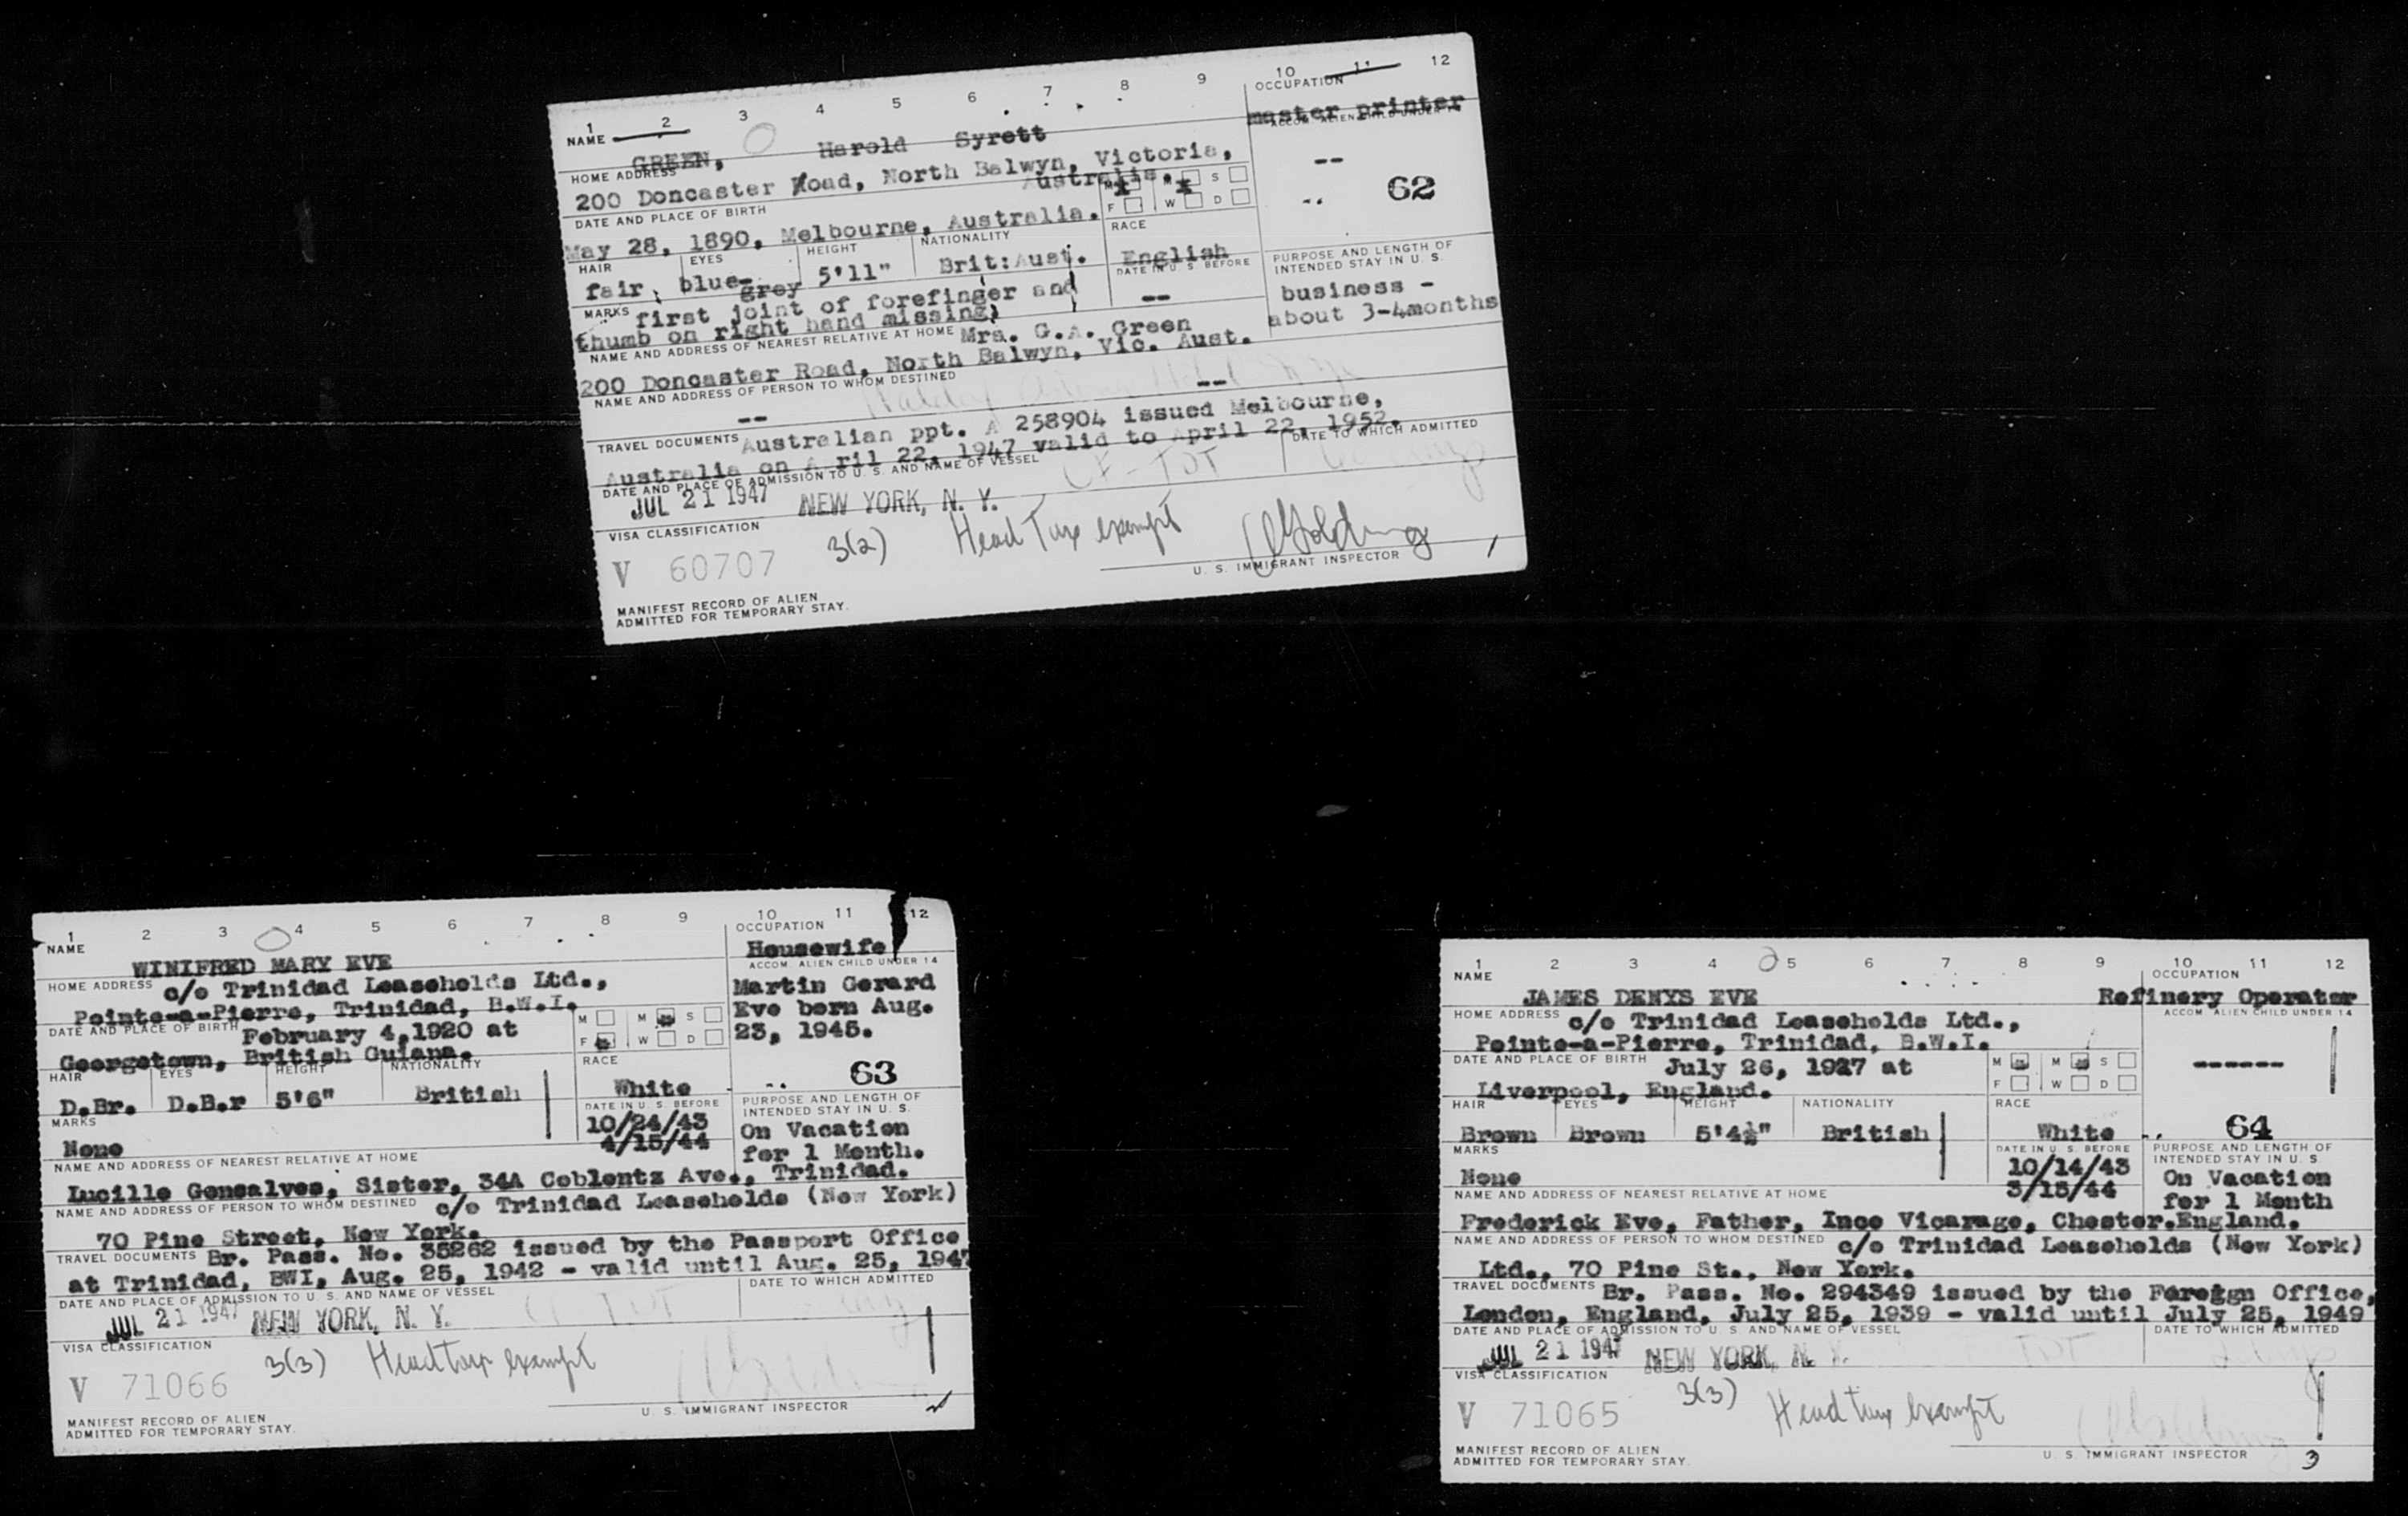 1 2 3 4 5 6 7 8 9 10 11 12
NAME
OCCUPATION
GREEN, Harold Syrett
master printer
HOME ADDRESS
ACCOM. ALIEN CHILD UNDER 14
200 Doncaster Road, North Balwyn, Victoria,
Australia.
--
M x M x S
F W D
-- 62
DATE AND PLACE OF BIRTH
May 28, 1890, Melbourne, Australia.
HAIR EYES HEIGHT NATIONALITY RACE
fair, blue-grey 5'11" Brit:Aust. English
DATE IN U. S. BEFORE
--
PURPOSE AND LENGTH OF
INTENDED STAY IN U. S.
business -
about 3-4months
MARKS first joint of forefinger and
thumb on right hand missing)
NAME AND ADDRESS OF NEAREST RELATIVE AT HOME Mrs. G.A. Green
200 Doncaster Road, North Balwyn, Vic. Aust.
NAME AND ADDRESS OF PERSON TO WHOM DESTINED
-- --
TRAVEL DOCUMENTS Australian ppt. A 258904 issued Melbourne,
Australia on A ril 22, 1947 valid to April 22, 1952.
DATE AND PLACE OF ADMISSION TO U. S. AND NAME OF VESSEL
DATE TO WHICH ADMITTED
JUL 21 1947 NEW YORK, N. Y. CF-TDT
VISA CLASSIFICATION
V 60707 3(2) Head Tax exempt Golding
U. S. IMMIGRANT INSPECTOR
MANIFEST RECORD OF ALIEN
ADMITTED FOR TEMPORARY STAY.
1 2 3 4 5 6 7 8 9 10 11 12
NAME
OCCUPATION
WINIFRED MARY EVE
Housewife
ACCOM. ALIEN CHILD UNDER 14
HOME ADDRESS c/o Trinidad Leaseholds Ltd.,
Pointe-a-Pierre, Trinidad, B.W.I.
Martin Gerard
Eve born Aug.
23, 1945.
M M S
F W D
DATE AND PLACE OF BIRTH February 4,1920 at
Georgetown, British Guiana.
63
HAIR EYES HEIGHT NATIONALITY RACE
D.Br. D.B.r 5'6" British White
DATE IN U. S. BEFORE
10/24/43
4/15/44
PURPOSE AND LENGTH OF
INTENDED STAY IN U. S.
On Vacation
for 1 Month.
MARKS
None
NAME AND ADDRESS OF NEAREST RELATIVE AT HOME
Lucille Gonsalves, Sister, 34A Coblentz Ave., Trinidad.
NAME AND ADDRESS OF PERSON TO WHOM DESTINED c/o Trinidad Leaseholds (New York)
70 Pine Street, New York.
TRAVEL DOCUMENTS Br. Pass. No. 35262 issued by the Passport Office
at Trinidad, BWI, Aug. 25, 1942 - valid until Aug. 25, 1947
DATE AND PLACE OF ADMISSION TO U. S. AND NAME OF VESSEL
DATE TO WHICH ADMITTED
JUL 21 1947 NEW YORK, N. Y. TDT
VISA CLASSIFICATION
V 71066 3(3) Head tax exempt
U. S. IMMIGRANT INSPECTOR
MANIFEST RECORD OF ALIEN
ADMITTED FOR TEMPORARY STAY.
1 2 3 4 5 6 7 8 9 10 11 12
NAME
OCCUPATION
JAMES DENYS EVE
Refinery Operator
ACCOM. ALIEN CHILD UNDER 14
HOME ADDRESS c/o Trinidad Leaseholds Ltd.,
Pointe-a-Pierre, Trinidad, B.W.I.
------
M M S
F W D
DATE AND PLACE OF BIRTH July 26, 1927 at
Liverpool, England.
64
HAIR EYES HEIGHT NATIONALITY RACE
Brown Brown 5'4½" British White
DATE IN U. S. BEFORE
10/14/43
3/15/44
PURPOSE AND LENGTH OF
INTENDED STAY IN U. S.
On Vacation
for 1 Month
MARKS
None
NAME AND ADDRESS OF NEAREST RELATIVE AT HOME
Frederick Eve, Father, Ince Vicarage, Chester.England.
NAME AND ADDRESS OF PERSON TO WHOM DESTINED c/o Trinidad Leaseholds (New York)
Ltd., 70 Pine St., New York.
TRAVEL DOCUMENTS Br. Pass. No. 294349 issued by the Foreign Office,
London, England, July 25, 1939 - valid until July 25, 1949
DATE AND PLACE OF ADMISSION TO U. S. AND NAME OF VESSEL
DATE TO WHICH ADMITTED
JUL 21 1947 NEW YORK, N. Y. TDT
VISA CLASSIFICATION
V 71065 3(3) Head tax exempt
U. S. IMMIGRANT INSPECTOR 3
MANIFEST RECORD OF ALIEN
ADMITTED FOR TEMPORARY STAY.